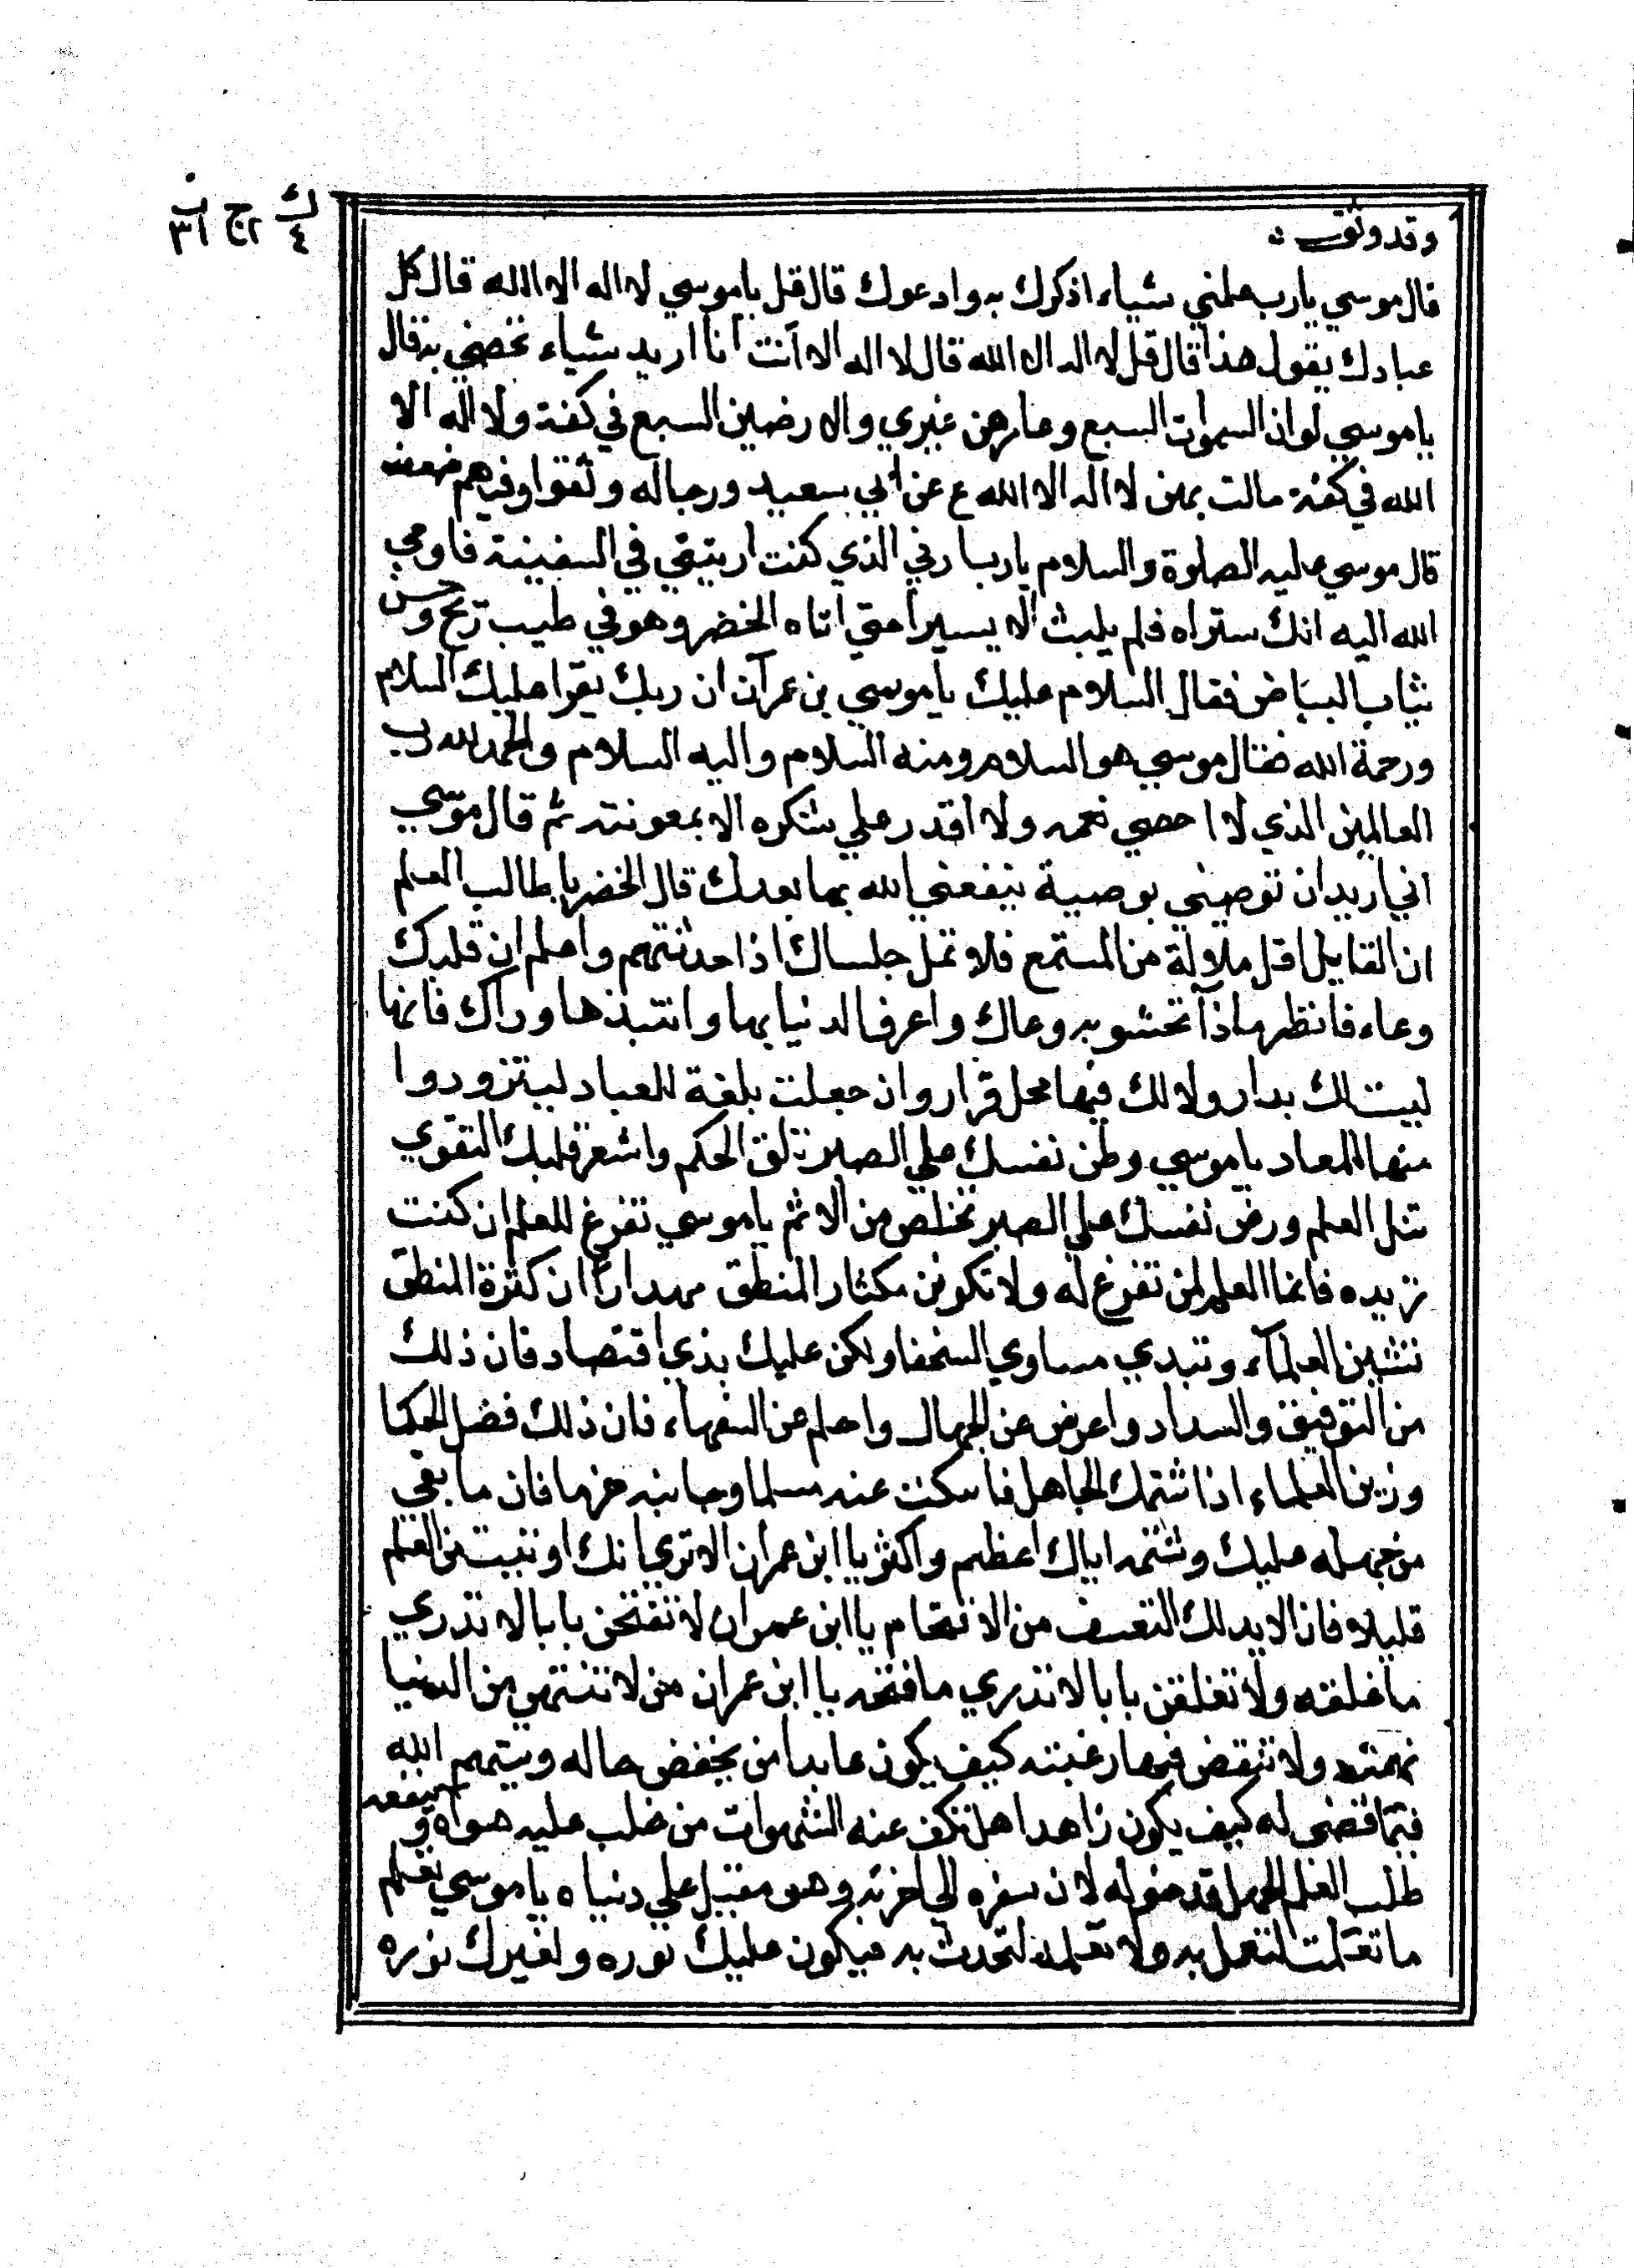 ك ٤ ٢ج ب ٣١
وقد وثق
قال موسي يارب علمني شياء اذكرك به وادعوك قال قل ياموسي لا اله الا الله قال كل
عبادك يقول هذا قال قل لا اله الا الله قال لا اله الا انت انا اريد شياء تخصني به قال
ياموسي لو ان السموات السبع وعامرهن غيري والارضين السبع في كفة ولا اله الا
الله في كفة مالت بهن لا اله الا الله ع عن ابي سعيد ورجاله وثقوا وفيهم ضعف
قال موسي عليه الصلوة والسلام يارب ارني الذي كنت اريتني في السفينة فاوحي
الله اليه انك ستراه فلم يلبث الا يسيرا حتي اتاه الخضر وهو في طيب ريح وحسن
ثياب البياض فقال السلام عليك ياموسي بن عمران ان ربك يقرا عليك السلام
ورحمة الله فقال موسي هو السلام ومنه السلام واليه السلام والحمد لله رب
العالمين الذي لا احصي نعمه ولا اقدر علي شكره الا بمعونته ثم قال موسي
اني اريد ان توصيني بوصية ينفعني الله بها بعدك قال الخضر يا طالب العلم
ان القايل اقل ملالة من المستمع فلا تمل جلساك اذا حدثتهم واعلم ان قلبك
وعاء فانظر ماذا تحشو به وعاك واعرف الدنيا بها وانتبذها وراك فانها
ليست لك بدار ولا لك فيها محل قرار وان جعلت بلغة للعباد ليتزودوا
منها للمعاد ياموسي وطن نفسك علي الصبر تلق الحكم واشعر قلبك التقوي
تنل العلم ورض نفسك علي الصبر تخلص من الاثم ياموسي تفرغ للعلم ان كنت
تريده فانما العلم لمن تفرغ له ولا تكونن مكثار المنطق مهدارا ان كثرة المنطق
تشين العلمآء وتبدي مساوي السخفا ولكن عليك بذي اقتصاد فان ذلك
من التوفيق والسداد واعرض عن الجهال واحلم عن السفهاء فان ذلك فضل الحكما
وزين العلماء اذا شتمك الجاهل فاسكت عنه سلما وجانبه حزما فان ما بقي
من جهله عليك وشتمه اياك اعظم واكثر يا ابن عمران الا تري انك اوتيت من العلم
قليلا فان الا يد لك التعسف من الاقتحام يا ابن عمران لا تفتحن بابا لا تدري
ما غلقه ولا تغلقن بابا لا تدري ما فتحه يا ابن عمران من لا تنتهي من الدنيا
نهمته ولا تنقض فيها رغبته كيف يكون عابدا من يحفض حاله ويتهم الله
فيما قضى له كيف يكون زاهدا هل تكف عنه الشهوات من غلب عليه هواه و ينفعه
طلب العلم الجهل قد حوله لان سفره الي اخرته وهو مقبل علي دنياه ياموسي تعلم
ما تعلمت لتعمل به ولا تعلمه لتحدث به فيكون عليك بوره ولغيرك نوره